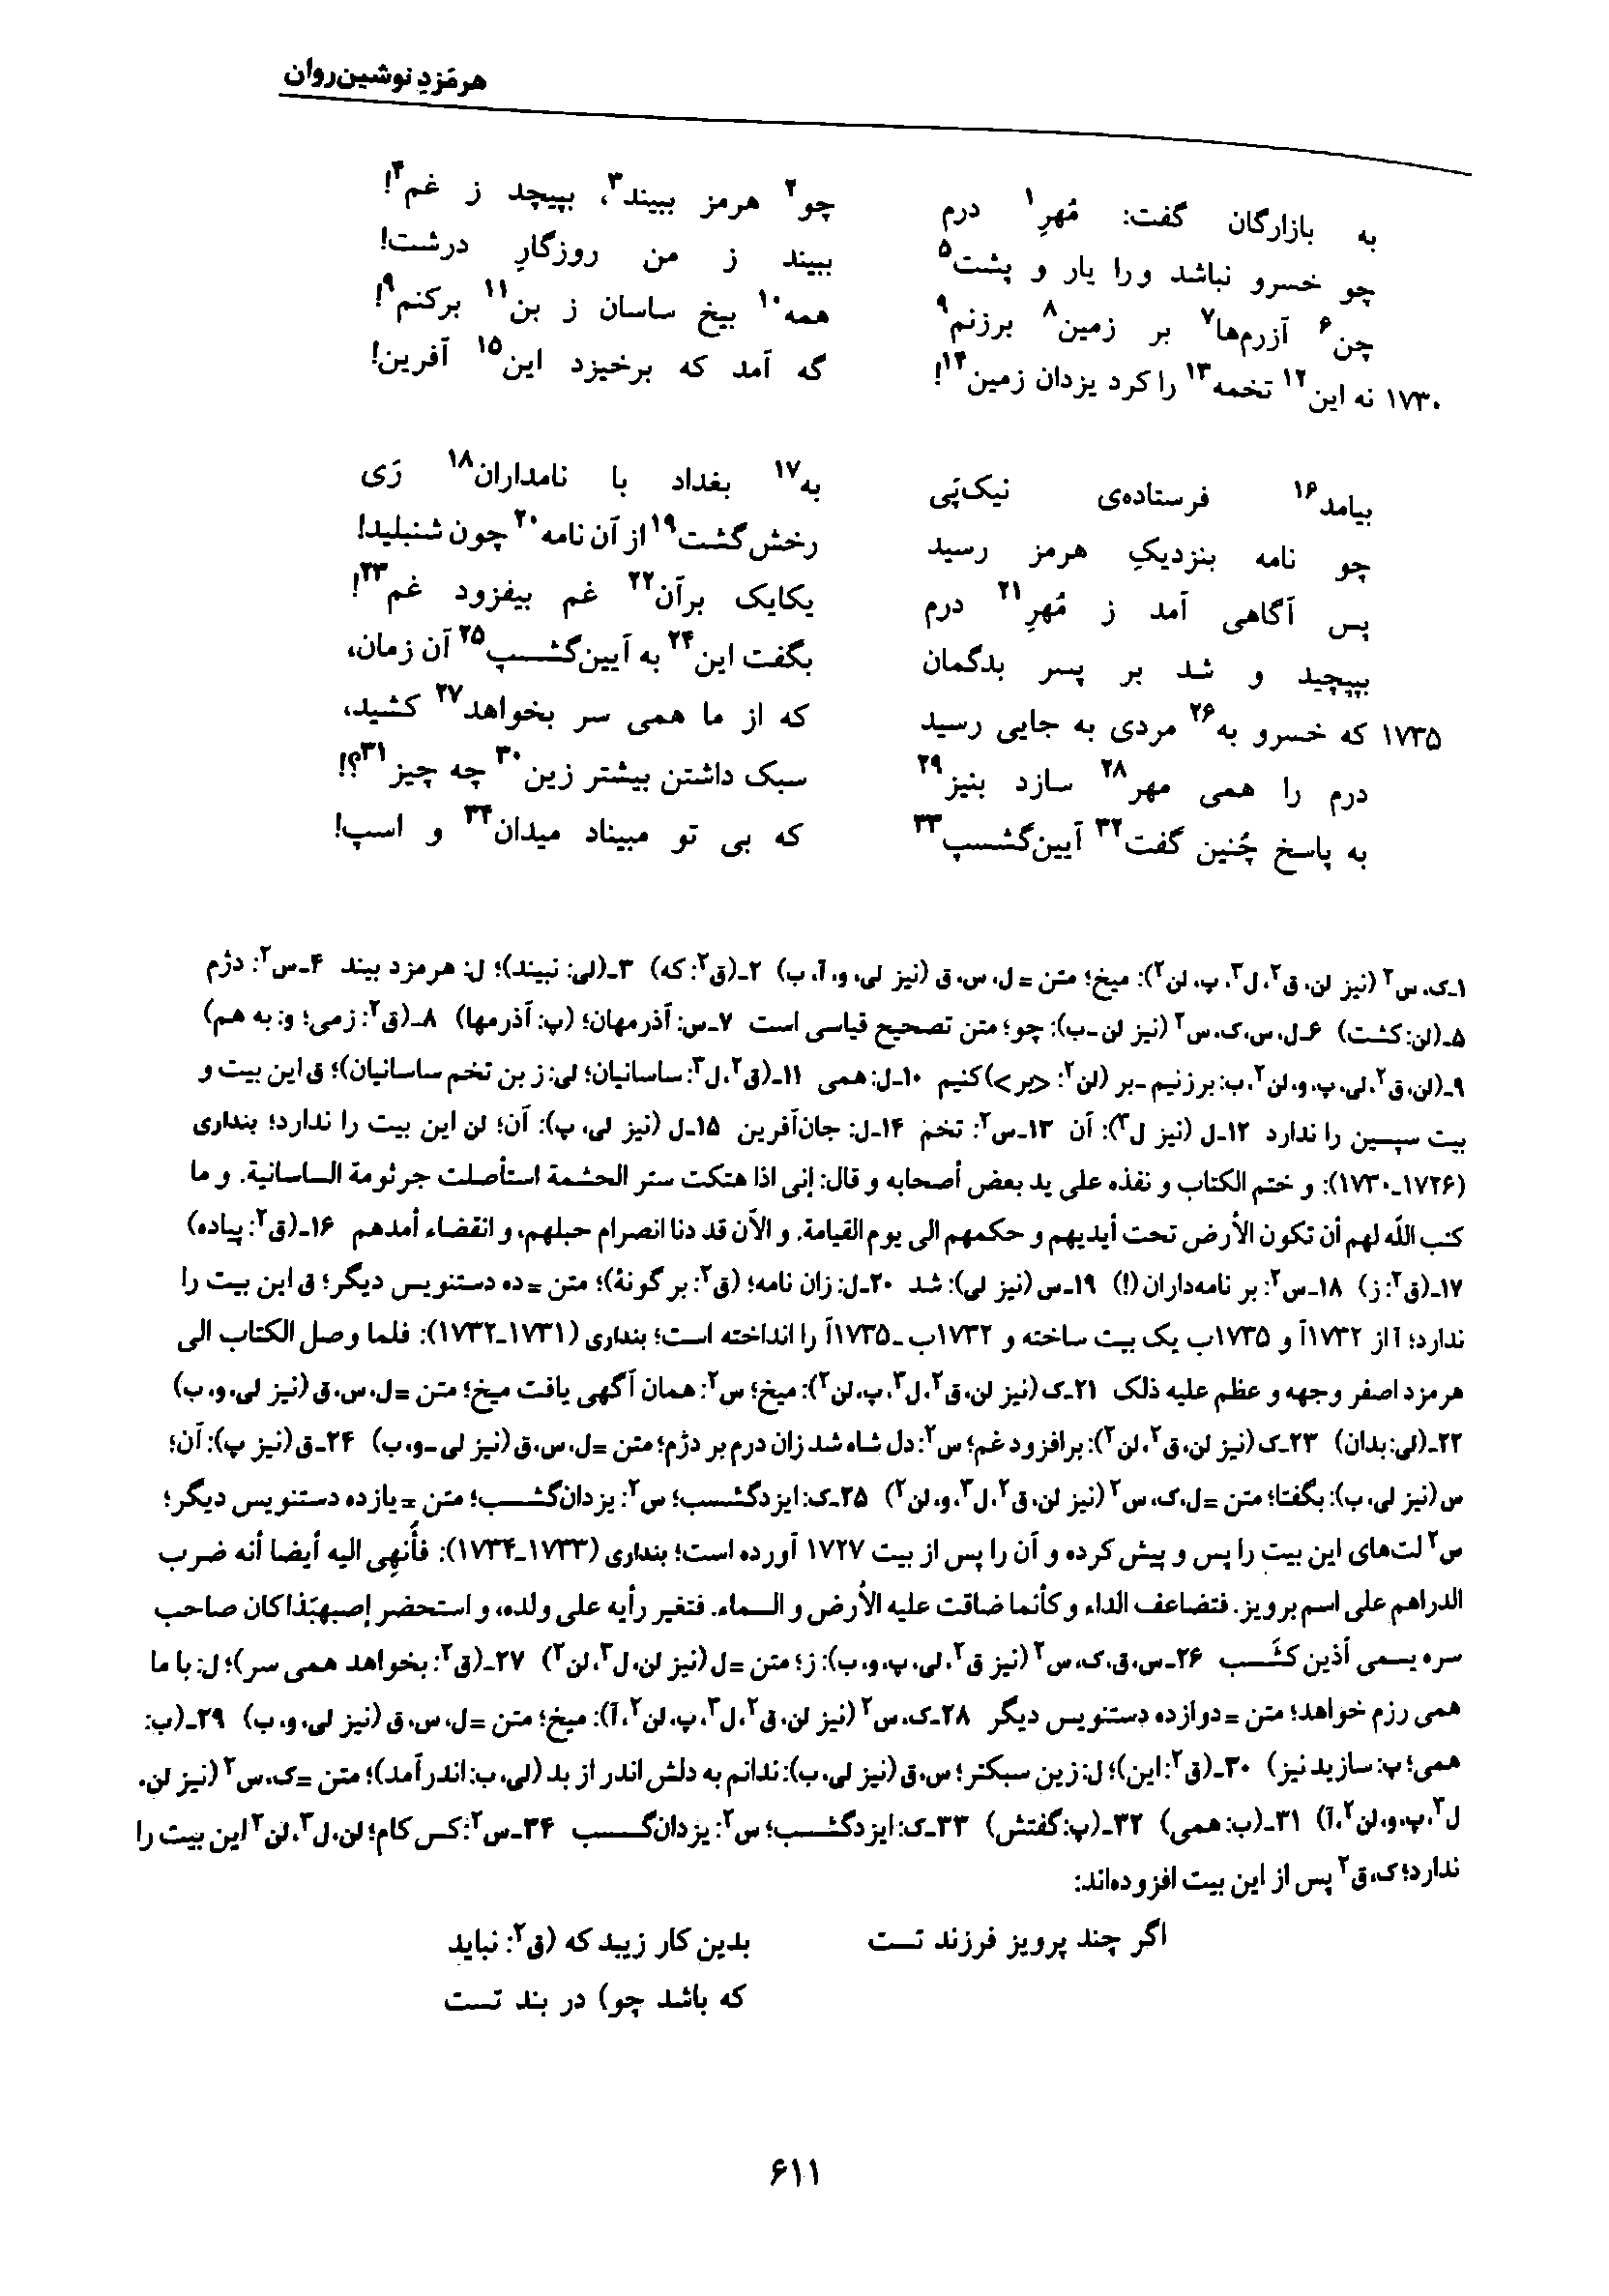 هرمَزدِ نوشین‌روان
به بازارگان گفت: مُهرِ۱ درم چو۲ هرمز ببیند۳، بپیچد ز غم۴!
چو خسرو نباشد ورا یار و پشت۵ ببیند ز من روزگارِ درشت!
چن۶ آزرم‌ها۷ بر زمین۸ برزنم۹ همه۱۰ بیخ ساسان ز بن۱۱ برکنم۹!
۱۷۳۰ نه این۱۲ تخمه۱۳ را کرد یزدان زمین۱۴! گه آمد که برخیزد این۱۵ آفرین!
بیامد۱۶ فرستاده‌ی نیک‌پَی به۱۷ بغداد با نامداران۱۸ رَی
چو نامه بنزدیکِ هرمز رسید رخش گشت۱۹ از آن نامه۲۰ چون شنبلید!
پس آگاهی آمد ز مُهرِ۲۱ درم یکایک برآن۲۲ غم بیفزود غم۲۳!
بپیچید و شد بر پسر بدگمان بگفت این۲۴ به آیین‌گشسپ۲۵ آن زمان،
۱۷۳۵ که خسرو به۲۶ مردی به جایی رسید که از ما همی سر بخواهد۲۷ کشید،
درم را همی مهر۲۸ سازد بنیز۲۹ سبک داشتن بیشتر زین۳۰ چه چیز۳۱؟!
به پاسخ چُنین گفت۳۲ آیین‌گشسپ۳۳ که بی تو مبیناد میدان۳۴ و اسپ!
۱ـ ک، س۲ (نیز لن، ق۲، ل۳، پ، لن۲): میخ؛ متن = ل، س، ق (نیز لی، و، آ، ب) ۲ـ (ق۲: که) ۳ـ (لی: نبیند)؛ ل: هرمزد بیند ۴ـ س۲: دژم
۵ـ (لن: کشت) ۶ـ ل، س، ک، س۲ (نیز لن ـ ب): چو؛ متن تصحیح قیاسی است ۷ـ س: آذرمهان؛ (پ: آذرمها) ۸ـ (ق۲: زمی؛ و: به هم)
۹ـ (لن، ق۲، لی، پ، و، لن۲، ب: برزنیم ـ بر (لن۲: <بر>) کنیم ۱۰ـ ل: همی ۱۱ـ (ق۲، ل۳: ساسانیان؛ لی: ز بن تخم ساسانیان)؛ ق این بیت و
بیت سپسین را ندارد ۱۲ـ ل (نیز ل۳): آن ۱۳ـ س۲: تخم ۱۴ـ ل: جان‌آفرین ۱۵ـ ل (نیز لی، پ): آن؛ لن این بیت را ندارد؛ بنداری
(۱۷۲۶ـ۱۷۳۰): و ختم الکتاب و نفذه علی ید بعض أصحابه و قال: إنی اذا هتکت ستر الحشمة استأصلت جرثومة الساسانیة. و ما
کتب الله لهم أن تکون الأرض تحت أیدیهم و حکمهم الی یوم القیامة. و الآن قد دنا انصرام حبلهم، و انقضاء أمدهم ۱۶ـ (ق۲: پیاده)
۱۷ـ (ق۲: ز) ۱۸ـ س۲: بر نامه‌داران (!) ۱۹ـ س (نیز لی): شد ۲۰ـ ل: زان نامه؛ (ق۲: بر گونهٔ)؛ متن = ده دستنویس دیگر؛ ق این بیت را
ندارد؛ آ از ۱۷۳۲آ و ۱۷۳۵ب یک بیت ساخته و ۱۷۳۲ب ـ ۱۷۳۵آ را انداخته است؛ بنداری (۱۷۳۱ـ۱۷۳۲): فلما وصل الکتاب الی
هرمزد اصفر وجهه و عظم علیه ذلک ۲۱ـ ک (نیز لن، ق۲، ل۳، پ، لن۲): میخ؛ س۲: همان آگهی یافت میخ؛ متن = ل، س، ق (نیز لی، و، ب)
۲۲ـ (لی: بدان) ۲۳ـ ک (نیز لن، ق۲، لن۲): برافزود غم؛ س۲: دل شاه شد زان درم بر دژم؛ متن = ل، س، ق (نیز لی ـ و، ب) ۲۴ـ ق (نیز پ): آن؛
س (نیز لی، ب): بگفتا؛ متن = ل، ک، س۲ (نیز لن، ق۲، ل۳، و، لن۲) ۲۵ـ ک: ایزدگشسب؛ س۲: یزدان‌گشسب؛ متن = یازده دستنویس دیگر؛
س۲ لت‌های این بیت را پس و پیش کرده و آن را پس از بیت ۱۷۲۷ آورده است؛ بنداری (۱۷۳۳ـ۱۷۳۴): فأُنهِی الیه أیضا أنه ضرب
الدراهم علی اسم برویز. فتضاعف الداء و کأنما ضاقت علیه الأرض و السماء. فتغیر رأیه علی ولده، و استحضر إصبهبَذا کان صاحب
سره یسمی أذین کشَسب ۲۶ـ س، ق، ک، س۲ (نیز ق۲، لی، پ، و، ب): ز؛ متن = ل (نیز لن، ل۳، لن۲) ۲۷ـ (ق۲: بخواهد همی سر)؛ ل: با ما
همی رزم خواهد؛ متن = دوازده دستنویس دیگر ۲۸ـ ک، س۲ (نیز لن، ق۲، ل۳، پ، لن۲، آ): میخ؛ متن = ل، س، ق (نیز لی، و، ب) ۲۹ـ (ب:
همی؛ پ: سازید نیز) ۳۰ـ (ق۲: این)؛ ل: زین سبکتر؛ س، ق (نیز لی، ب): ندانم به دلش اندر از بد (لی، ب: اندر آمد)؛ متن = ک، س۲ (نیز لن،
ل۳، پ، و، لن۲، آ) ۳۱ـ (ب: همی) ۳۲ـ (پ: گفتش) ۳۳ـ ک: ایزدگشسب؛ س۲: یزدان‌گشسب ۳۴ـ س۲: کس کام؛ لن، ل۳، لن۲ این بیت را
ندارد؛ ک، ق۲ پس از این بیت افزوده‌اند:
اگر چند پرویز فرزند تست بدین کار زیبد که (ق۲: نباید
که باشد چو) در بند تست
۶۱۱